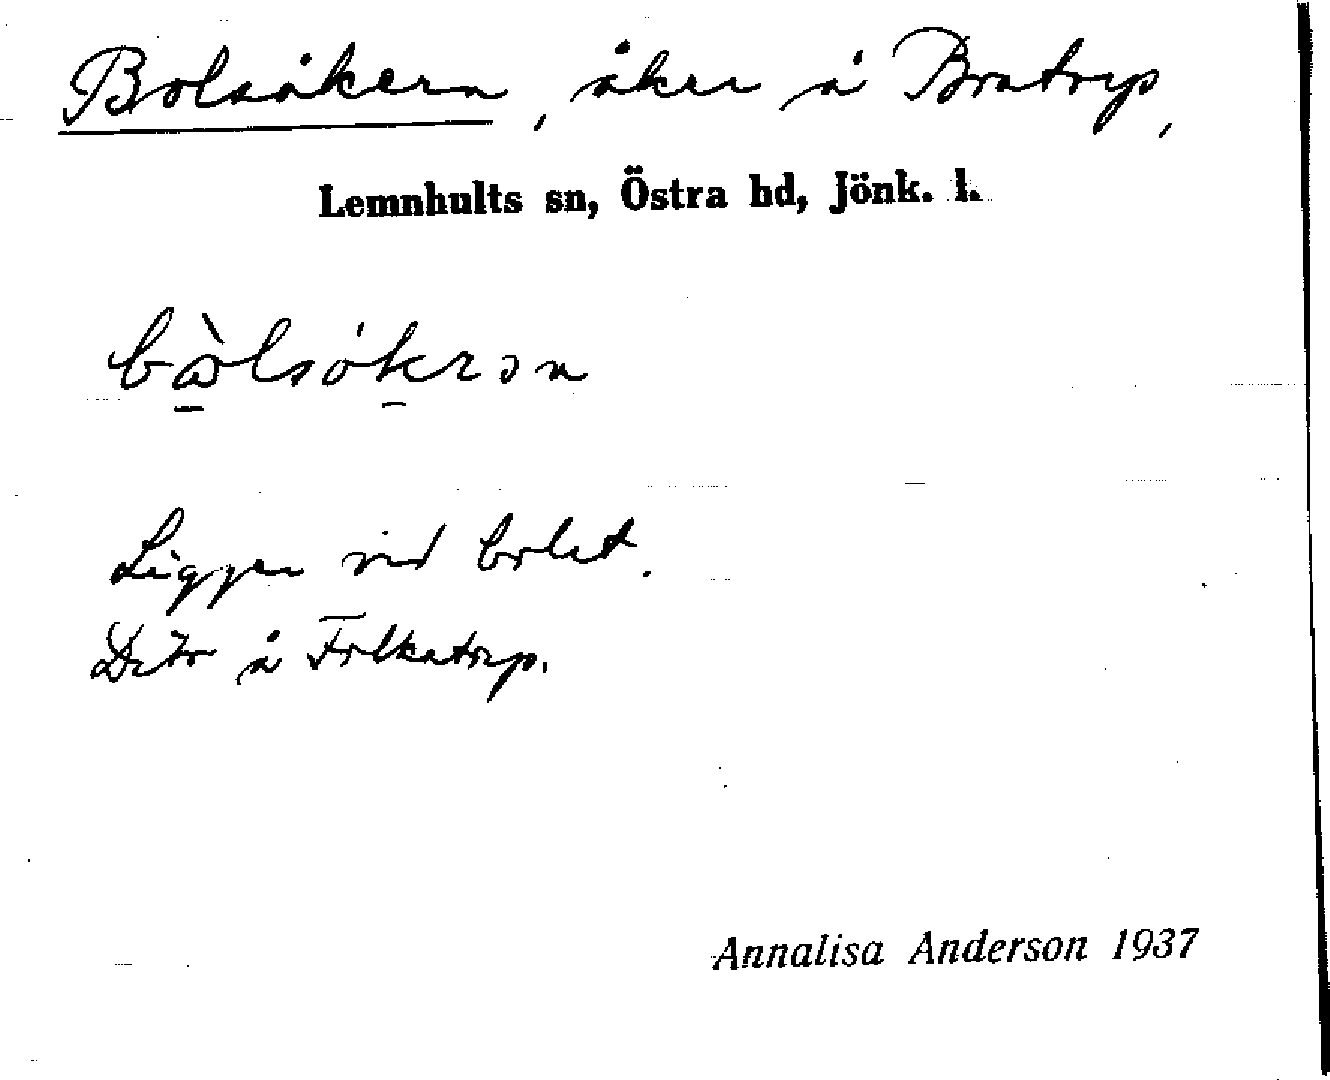 Bolsåkern, åker å Bratryp,
Lemnhults sn, Östra hd, Jönk. l.
Ligger vid bolet.
Dito å Folkatryp.
Annalisa Anderson 1937